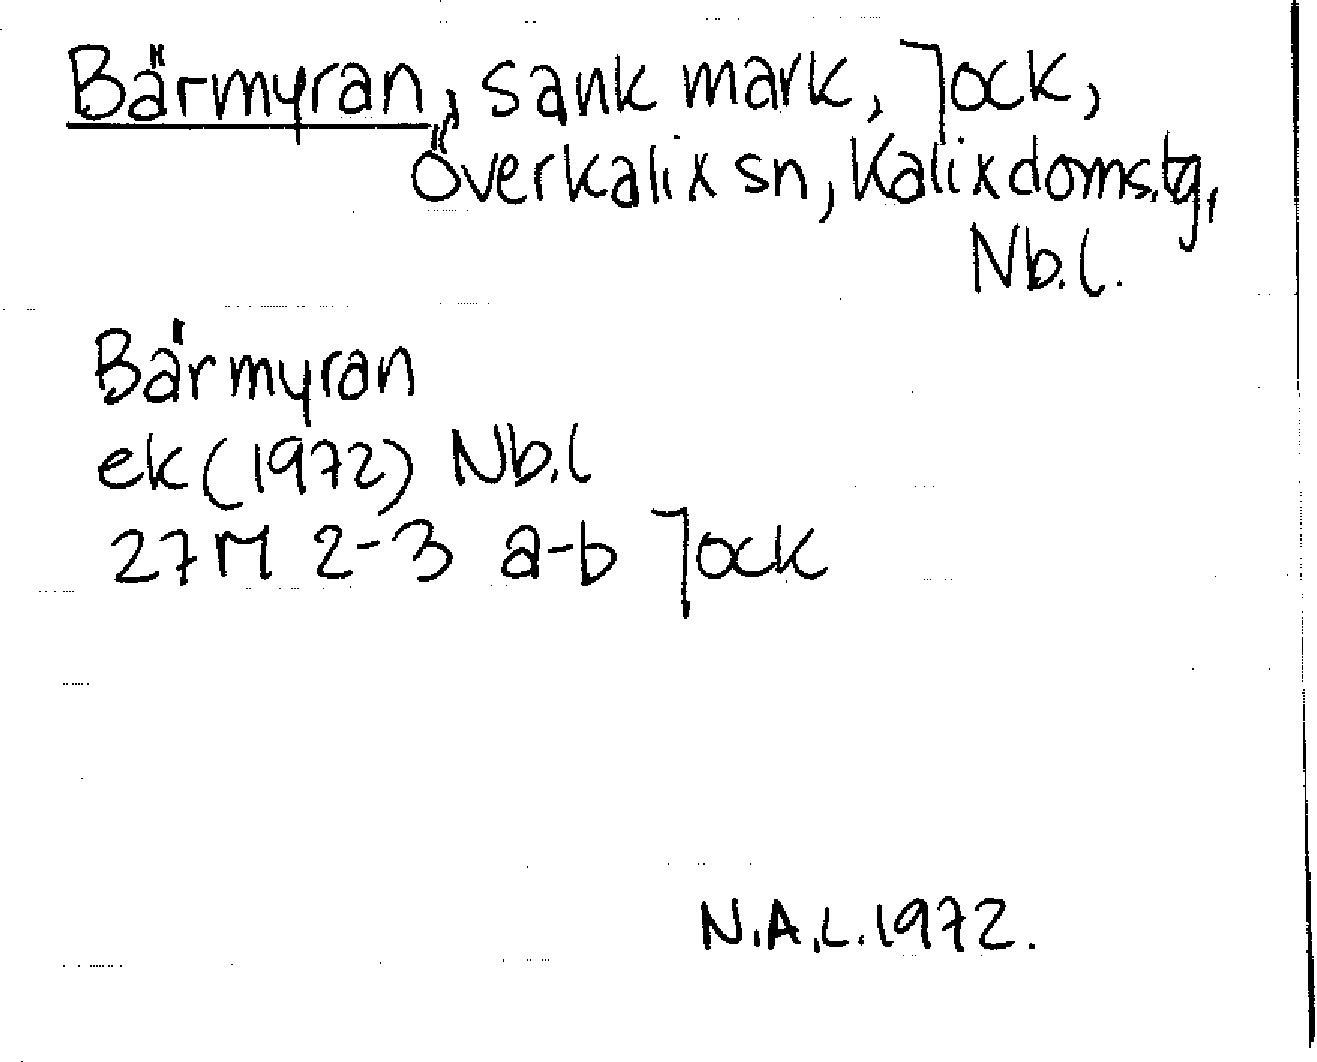 Bärmyran, sank mark, Jock,
Överkalix sn, Kalix doms.tg,
Nb.l.
Bärmyran
ek (1972) Nb.l
27M 2-3 a-b Jock
N.A.L. 1972.